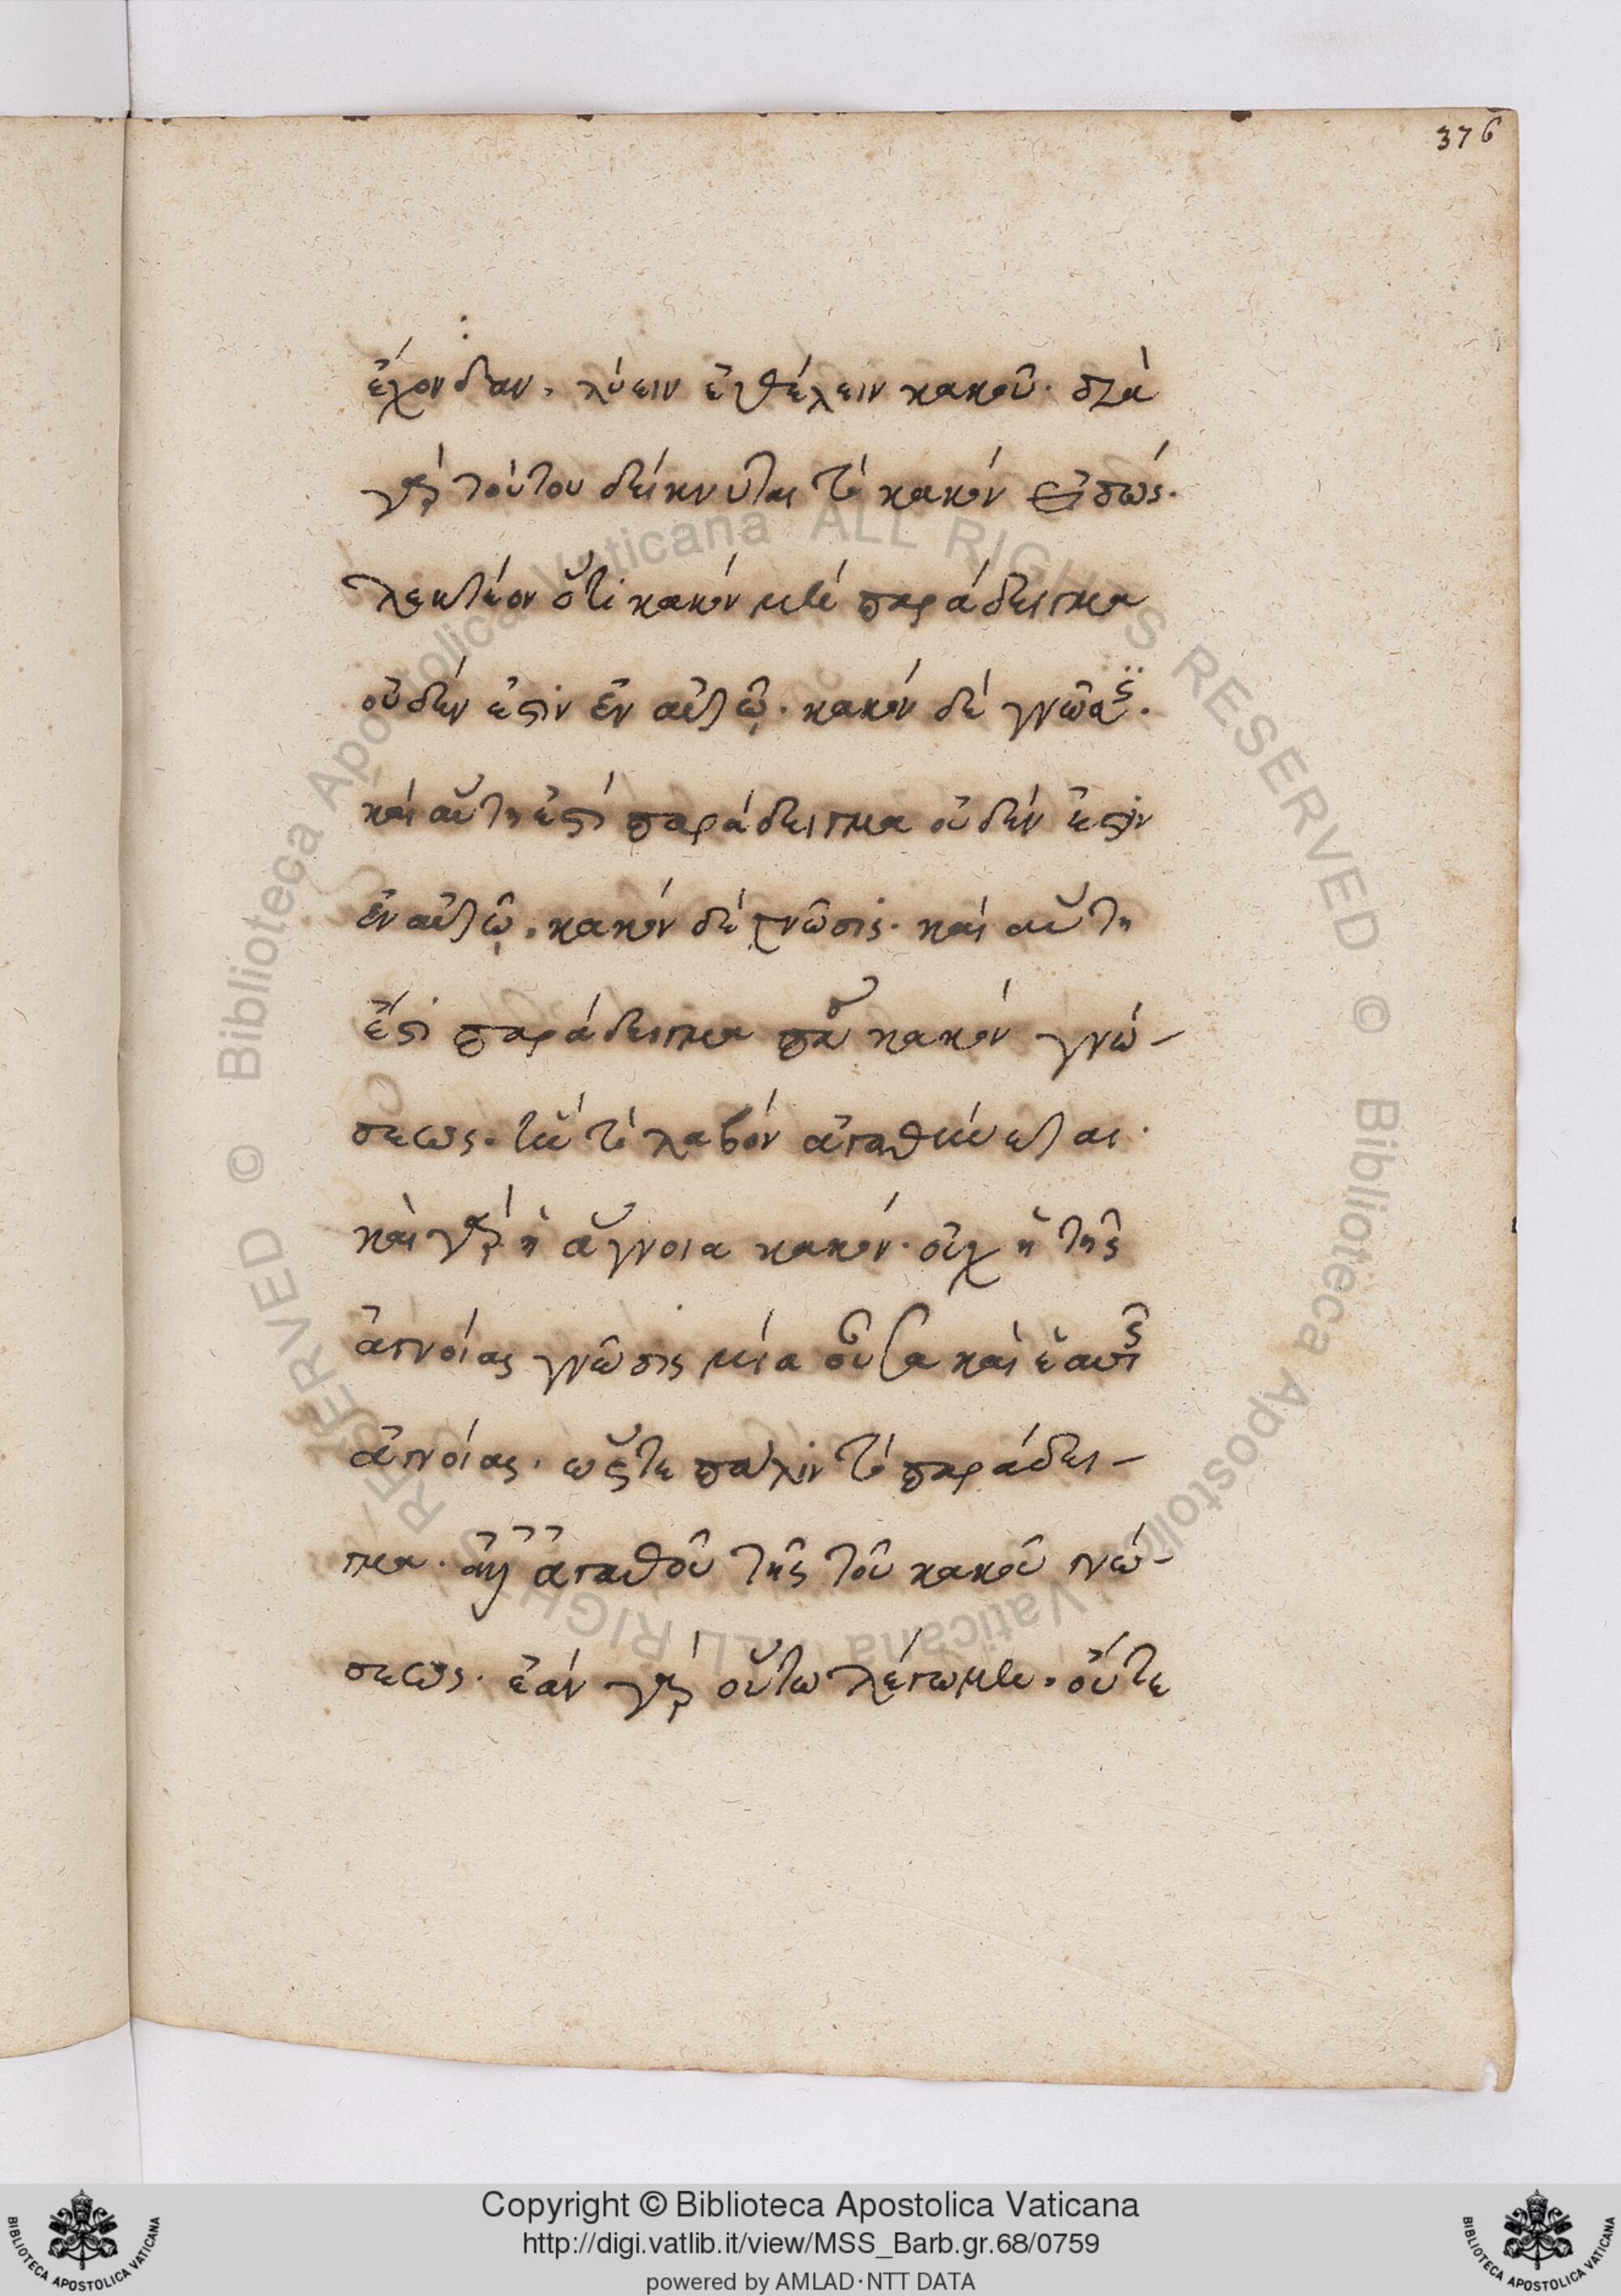 376
ἔχονσιαν, λύειν ἐθέλειν κακοῦ· διὰ
γὰρ τούτου δείκνυται τὸ κακὸν εἶπώς·
λεκτέον ὅτι κακὸν μὲν παράδειγμα
οὐδὲν ἐστὶν ἐν αὐτῷ· κακὸν δὲ γνῶσις·
καὶ αὕτη ἐστὶ παράδειγμα οὐδὲν ἐστὶν
ἐν αὐτῷ, κακὸν δὲ γνῶσις· καὶ αὕτη
ἐστὶ παράδειγμα κακὸν γνώ-
σεως· τὸ λαβὸν ἀγαθύνεται·
καὶ γὰρ ἡ ἄγνοια κακόν· οὐχ ἡ τῆς
ἀγνοίας γνῶσις μία οὖσα καὶ ἑαυτῆς
ἀγνοίας· ὥστε πάλιν τὸ παράδει-
γμα· ἀγαθοῦ τῆς τοῦ κακοῦ γνώ-
σεως· ἐὰν γὰρ οὕτω λέγωμεν· οὔτε
© Biblioteca Apostolica Vaticana ALL RIGHTS RESERVED © Biblioteca Apostolica Vaticana ALL RIGHTS RESERVED
Copyright © Biblioteca Apostolica Vaticana
http://digi.vatlib.it/view/MSS_Barb.gr.68/0759
powered by AMLAD·NTT DATA
BIBLIOTECA APOSTOLICA VATICANA
BIBLIOTECA APOSTOLICA VATICANA